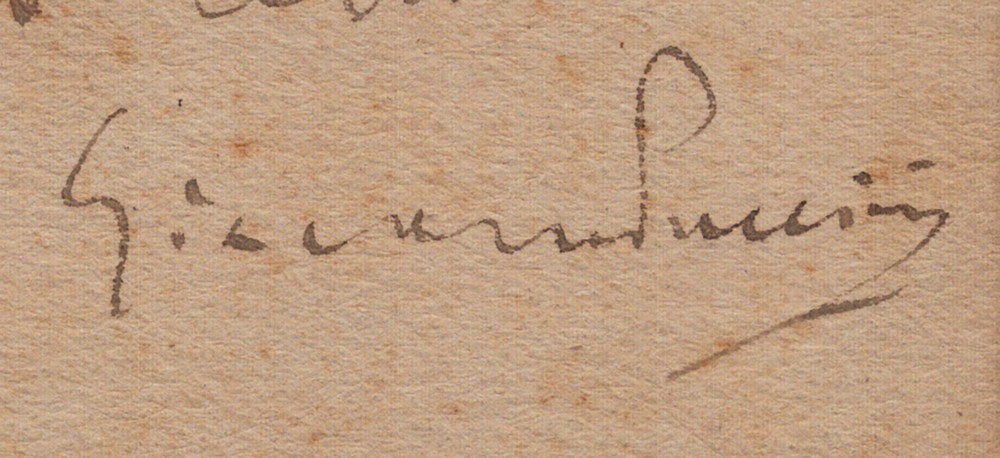 Giacomo Puccini